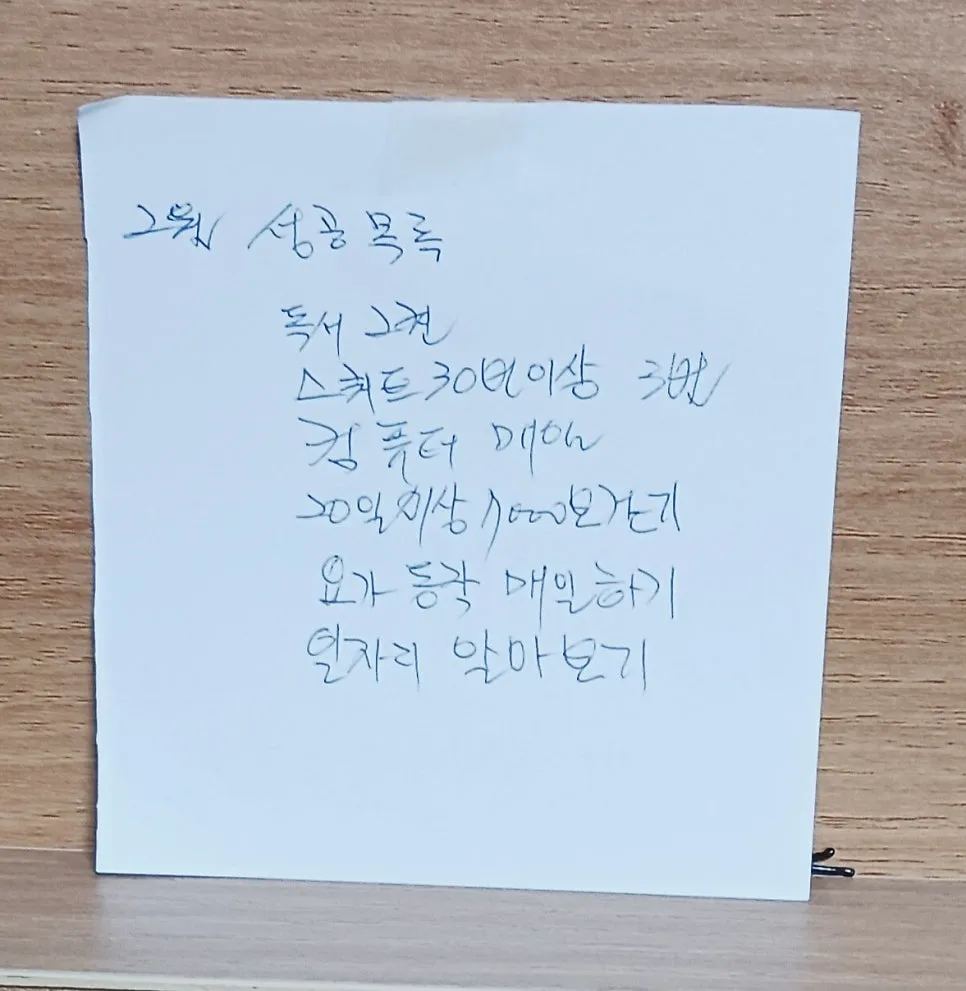 2월 성공목록
독서 2권
스쿼트 30번이상 3번
컴퓨터 매일
20일이상 7000보걷기
요가 동작 매일하기
일자리 알아보기